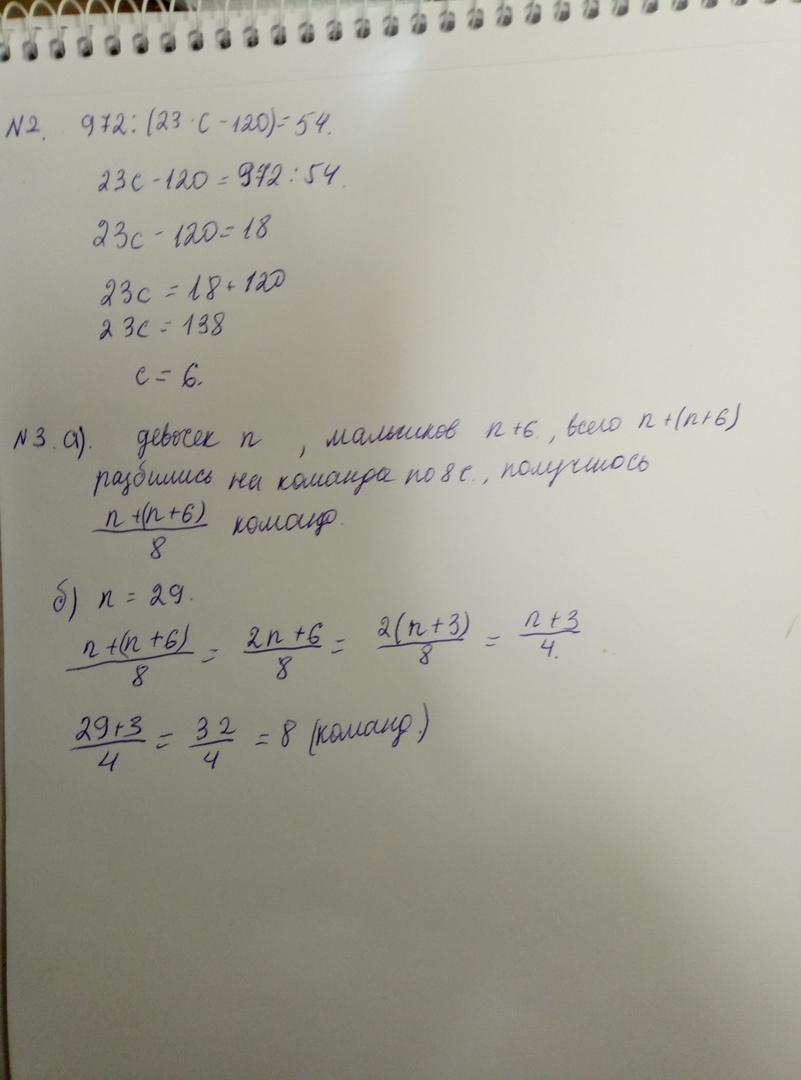 N2. 972:(23·c-120)=54.
23c-120=972:54.
23c-120=18
23c=18+120
23c=138
c=6.
N3.а). девочек n, мальчиков n+6, всего n+(n+6)
разбились на команда по 8 с., получилось
n+(n+6)/8 команд.
б) n=29.
n+(n+6)/8 = 2n+6/8 = 2(n+3)/8 = n+3/4.
29+3/4 = 32/4 = 8 (команд.)